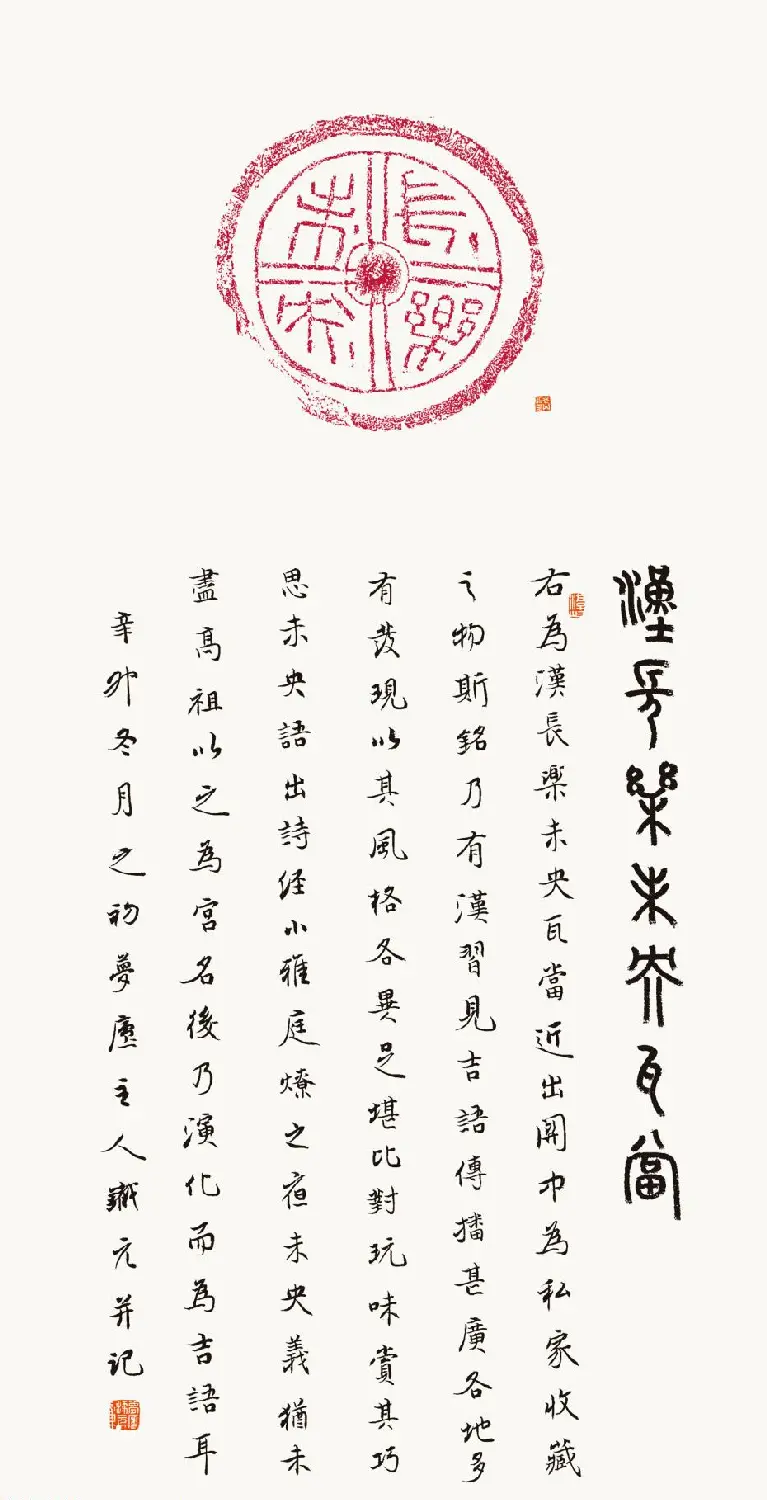 長樂未央
漢長樂未央瓦當
右為漢長樂未央瓦當近出關中為私家收藏
之物斯銘乃有漢習見吉語傳播甚廣各地多
有發現以其風格各異足堪比對玩味賞其巧
思未央語出詩經小雅庭燎之夜未央義猶未
盡高祖以之為宮名後乃演化而為吉語耳
辛卯冬月之初夢廬主人識元并记